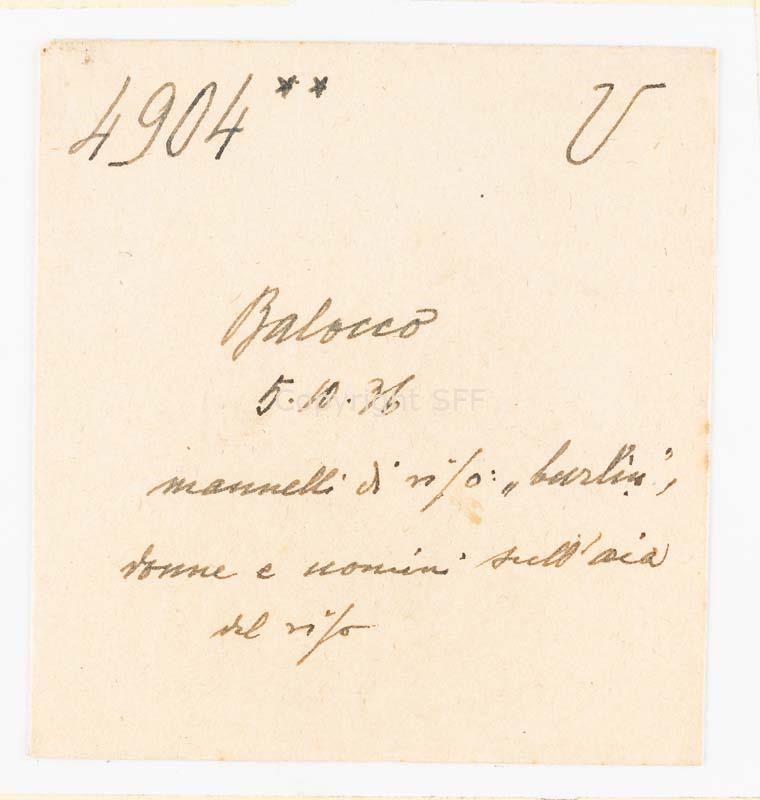 4904** V
Balocco
5.10.36
mannelli di riso: „burlin",
donne e uomini sull'aia
del riso
Copyright SFF